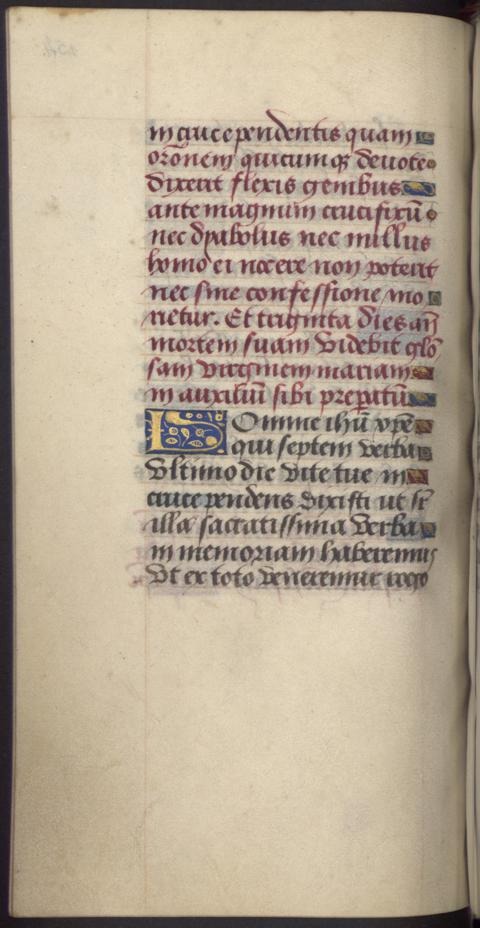 in cruce pendentis quam
orōnem quicumqȝ deuote
dixerit flexis genibus
ante magnum crucifixū
nec dyabolus nec nullus
homo ei nocere non poterit
nec sine confessione mo
rietur. Et triginta dies añ
mortem suam videbit glō
sam virginem mariam
in auxiliū sibi preparatū
Domine ihū xpē
qui septem verba
vltimo die vite tue in
cruce pendens dixisti ut sē
illa sacratissima verba
in memoriam haberemus
vt ex toto veneremur rogo